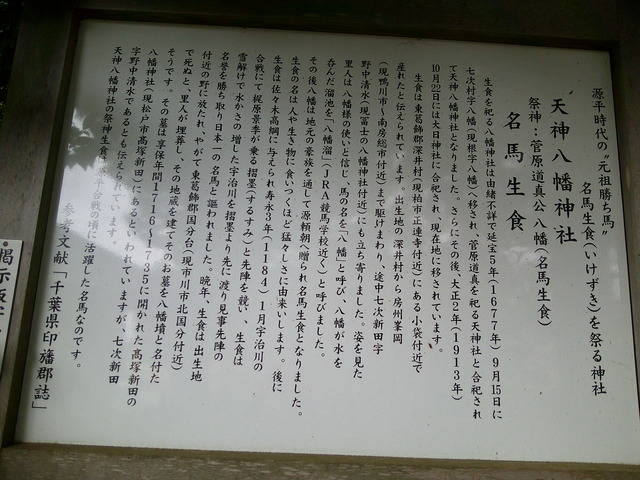 源平時代の"元祖勝ち馬"
名馬生食(いけずき)を祭る神社
天神八幡神社
祭神:菅原道真公 八幡(名馬生食)
名馬生食
生食を祀る八幡神社は由緒不詳で延宝5年(1677年)9月15日に
七次村字八幡(現根字八幡)へ移され、菅原道真を祀る天神社と合祀され
て天神八幡神社となりました。さらにその後、大正2年(1913年)
10月22日には大日神社に合祀され、現在地に移されています。
生食は東葛飾郡深井村(現柏市正連寺付近)にある小袋付近で
産れたと伝えられています。出生地の深井村から房州峯岡
(現鴨川市〜南房総市付近)まで駆けまわり、途中七次新田字
野中清水(現冨士の八幡神社付近)にも立ち寄りました。姿を見た
里人は八幡様の使いと信じ、馬の名を「八幡」と呼び、八幡が水を
呑んだ溜池を「八幡溜」(JRA競馬学校近く)と呼びました。
その後八幡は地元の豪族を通して源頼朝へ贈られ名馬生食となりました。
生食の名は人や生き物に食いつくほど猛々しさに由来いします。後に
生食は佐々木高綱に与えられ寿永3年(1184)1月宇治川の
合戦にて梶原景季が乗る摺墨(するすみ)と先陣を競い、生食は
雪解けで水かさの増した宇治川を摺墨より先に渡り見事先陣の
名誉を勝ち取り日本一の名馬と謳われました。晩年、生食は出生地
付近の野に放たれ、やがて東葛飾郡国分台(現市川市北国分付近)
で死ぬと、里人が埋葬し、その地蔵を建てそのお墓を八幡墳と名付た
そうです。その墓は享保年間1716〜1735に開かれた高塚新田の
八幡神社(現松戸市高塚新田)にあるといわれていますが、七次新田
字野中清水であるとも伝えられています。
天神八幡神社の祭神生食は源平合戦の頃に活躍した名馬なのです。
参考文献「千葉県印旛郡誌」
掲示板